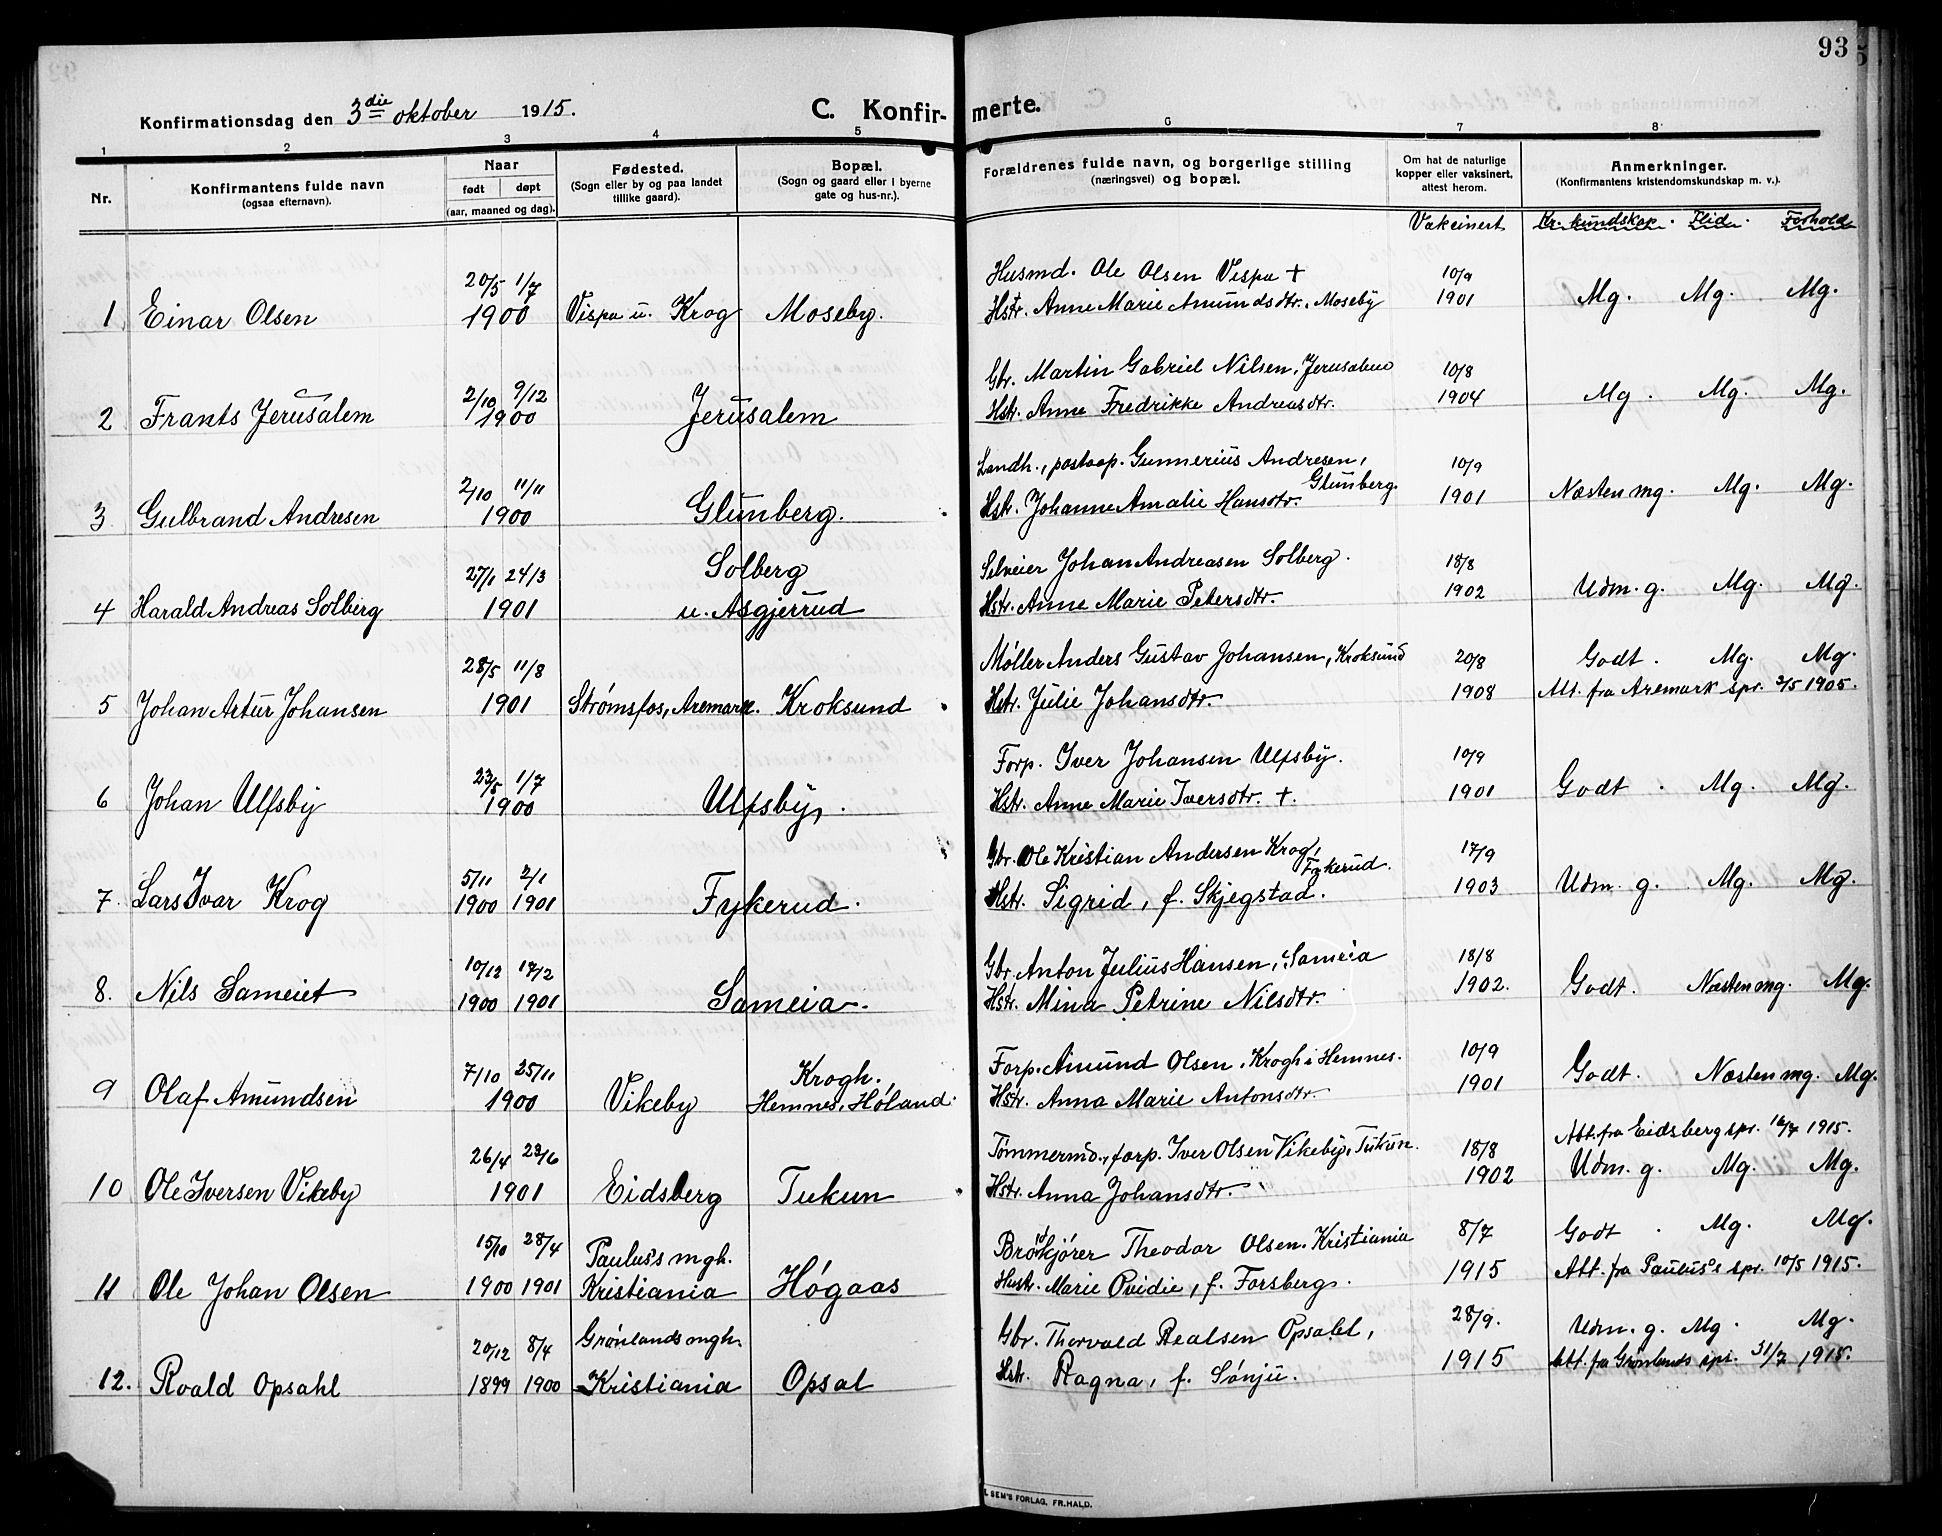 93
Konfirmationsdag den 3die oktober 1915.
C. Konfirmerte.
1 2 3 4 5 6 7 8
Nr.
Konfirmantens fulde navn
(ogsaa efternavn).
Naar
født døpt
(aar, maaned og dag).
Fødested.
(Sogn eller by og paa landet
tillike gaard).
Bopæl.
(Sogn og gaard eller i byerne
gate og hus-nr.).
Forældrenes fulde navn, og borgerlige stilling
(næringsvei) og bopæl.
Om hat de naturlige
kopper eller vaksinert,
attest herom.
Anmerkninger.
(Konfirmantens kristendomskundskap m. v.).
Vakcinert Kr. kundskap. Flid. Forhold
20/5 1/7 Husmd. Ole Olsen Vispa + 10/9
1 Einar Olsen 1900 Vispa u. Krog Moseby. Hstr. Anne Marie Amundsdtr. Moseby 1901 Mg. Mg. Mg.
2/10 9/12 Gbr. Martin Gabriel Nilsen, Jerusalem 10/8
2 Frants Jerusalem 1900 Jerusalem Hstr. Anne Fredrikke Andreasdtr. 1904 Mg. Mg. Mg.
2/10 11/11 Landh., postaap. Gunnerius Andresen, Glünberg. 10/9
3 Gulbrand Andresen 1900 Glünberg. Hstr. Johanne Amalie Hansdtr. 1901 Næsten mg. Mg. Mg.
27/1 24/3 Solberg Selveier Johan Andreasen Solberg. 18/8
4 Harald Andreas Solberg 1901 u. Asgjerrud Hstr. Anne Marie Petersdtr. 1902 Udm. g. Mg. Mg.
28/5 11/8 Møller Anders Gustav Johansen, Kroksund 20/8 Godt. Mg. Mg.
5 Johan Artur Johansen 1901 Strømsfos, Aremark. Kroksund Hstr. Julie Johansdtr. 1908 Att. fra Aremark spr. 2/5 1905.
23/5 1/7 Forp. Iver Johansen Ulfsby. 10/9
6 Johan Ulfsby 1900 Ulfsby. Hstr. Anne Marie Iversdtr. +. 1901 Godt. Mg. Mg.
5/11 2/1 Gbr. Ole Kristian Andersen Krog, Fykerud. 17/9
7. Lars Ivar Krog 1900 1901 Fykerud. Hstr. Sigrid, f. Skjegstad. 1903 Udm. g. Mg. Mg.
10/12 17/2 Gbr. Anton Julius Hansen, Sameia 18/8
8. Nils Sameiet 1900 1901 Sameia. Hstr. Mina Petrine Nilsdtr. 1902. Godt. Næsten mg. Mg.
7/10 25/11 Krogh. Forp. Amund Olsen, Krogh i Hemnes. 10/9
9 Olaf Amundsen 1900 Vikeby Hemnes, Høland. Hstr. Anna Marie Antonsdtr. 1901 Godt. Næsten mg. Mg.
26/4 23/6 Tømmermd., forp. Iver Olsen Vikeby, Tukun. 18/8 Att. fra Eidsberg spr. 1915.
10 Ole Iversen Vikeby 1901 Eidsberg Tukun Hstr. Anna Johansdtr. 1902 Udm. g. Mg. Mg.
15/10 28/4 Paulus's mgh. Brødkjører Theodor Olsen. Kristiania 8/7 Godt. Mg. Mg.
11 Ole Johan Olsen 1900 1901 Kristiania Høgaas Hustr. Marie Ovidie, f. Forsberg. 1915 Att. fra Paulus's spr. 10/5 1915.
20/12 8/4 Grønlands mgh. Gbr. Thorvald Realsen Opsahl, 28/9. Udm. g. Mg. Mg.
12. Roald Opsahl 1899 1900 Kristiania Opsal Hstr. Ragna, f. Sønju. 1915 Att. fra Grønlands spr. 31/7 1915.
SEM'S FORLAG, FR.HALD.